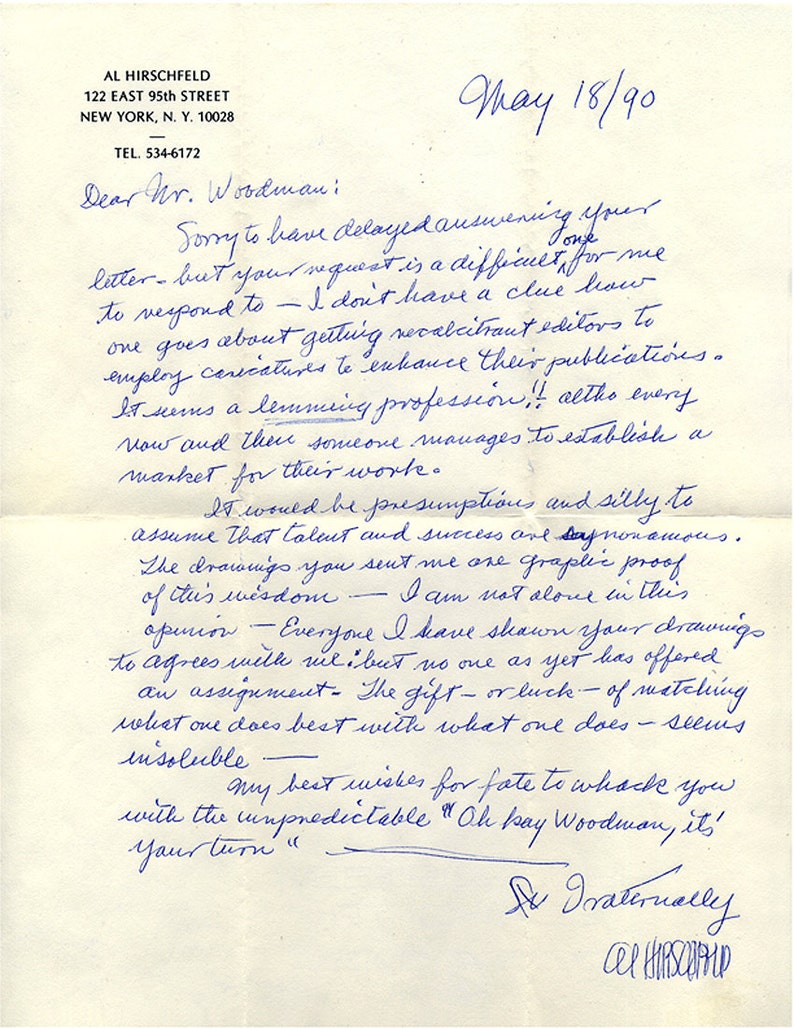 AL HIRSCHFELD
122 EAST 95th STREET
NEW YORK, N. Y. 10028
—
TEL. 534-6172
May 18/90
Dear Mr. Woodman:
Sorry to have delayed answering your
letter - but your request is a difficult, one for me
to respond to — I don't have a clue how
one goes about getting recalcitrant editors to
employ caricatures to enhance their publications.
It seems a lemming profession!! altho every
now and then someone manages to establish a
market for their work.
It would be presumptious and silly to
assume that talent and success are synonamous.
The drawings you sent me are graphic proof
of this wisdom — I am not alone in this
opinion — Everyone I have shown your drawings
to agrees with me: but no one as yet has offered
an assignment - The gift - or luck - of matching
what one does best with what one does - seems
insoluble —
My best wishes for fate to whack you
with the unpredictable "Oh kay Woodman, it's
your turn" —
Fraternally
Al HIRSCHFELD